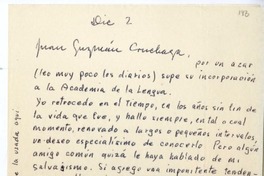 Dic 2
183
Juan Guzmán Cruchaga,
por un azar
(leo muy poco los diarios) supe su incorporación
a la Academia de la Lengua.
Yo retrocedo en el tiempo, en los años sin fin de
la vida que tuve, y hallo siempre, en tal o cual
momento, renovado a largos o pequeños intervalos,
un deseo especialísimo de conocerlo. Pero algún
amigo común quizá le haya hablado de mi
salvajismo. Si agrego una impenitente tenden-